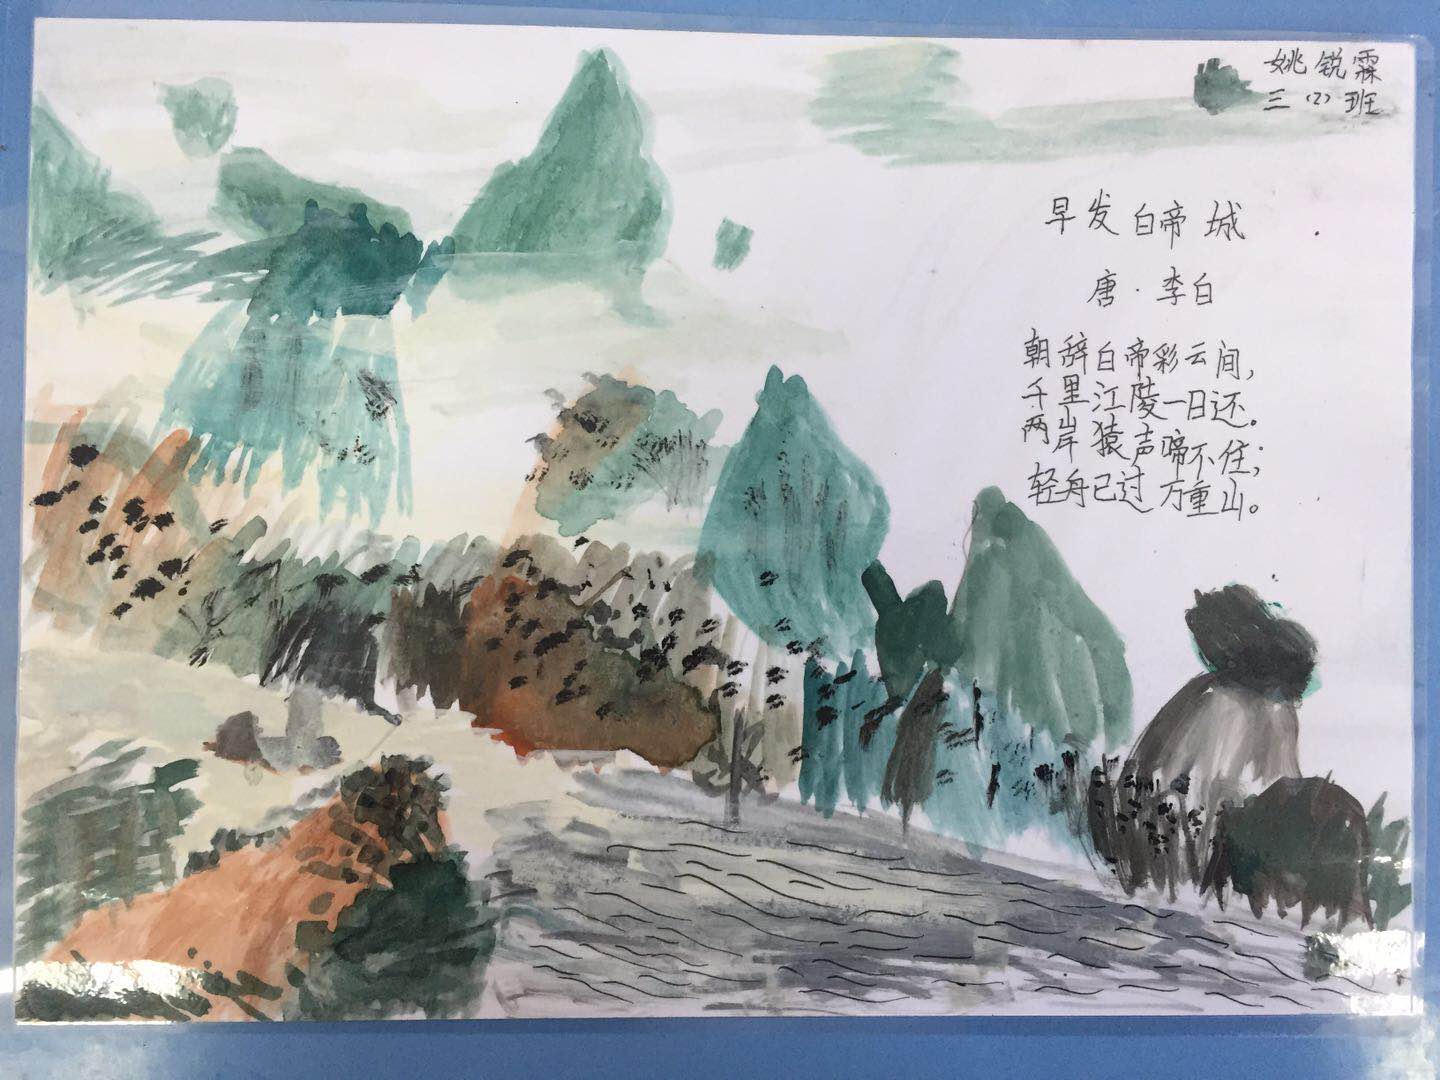 姚锐霖
三(2)班
早发白帝城
唐·李白
朝辞白帝彩云间,
千里江陵一日还。
两岸猿声啼不住;
轻舟已过万重山。